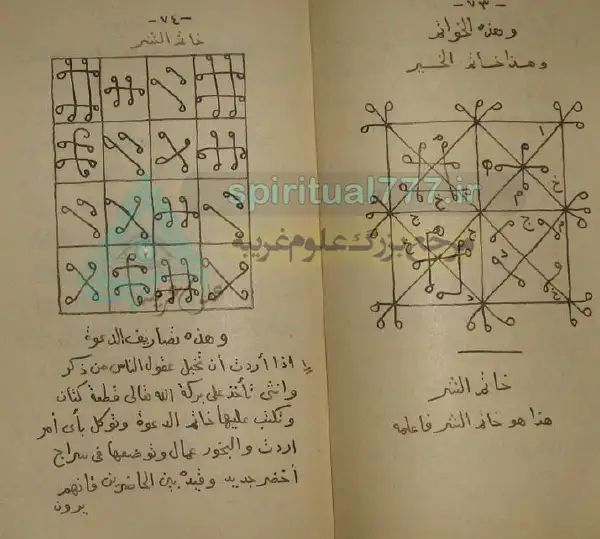 -٧٣-
وهذه الخواتم
وهذا خاتم الخير
خاتم الشر
هذا هو خاتم الشر فاعلمه
-٧٤-
خاتم الشر
وهذه تصاريف الدعوة
اذا أردت أن تخبل عقول الناس من ذكر
وانثى تأخذ على بركة الله تعالى قطعة كتان
وتكتب عليها خاتم الدعوة وتوكل بأى أمر
اردت والبخور عمال وتوضعها فى سراج
أخضر جديد وقيده بين الحاضرين فانهم
يرون
spiritual777.ir
مرجع بزرگ علوم غریبه